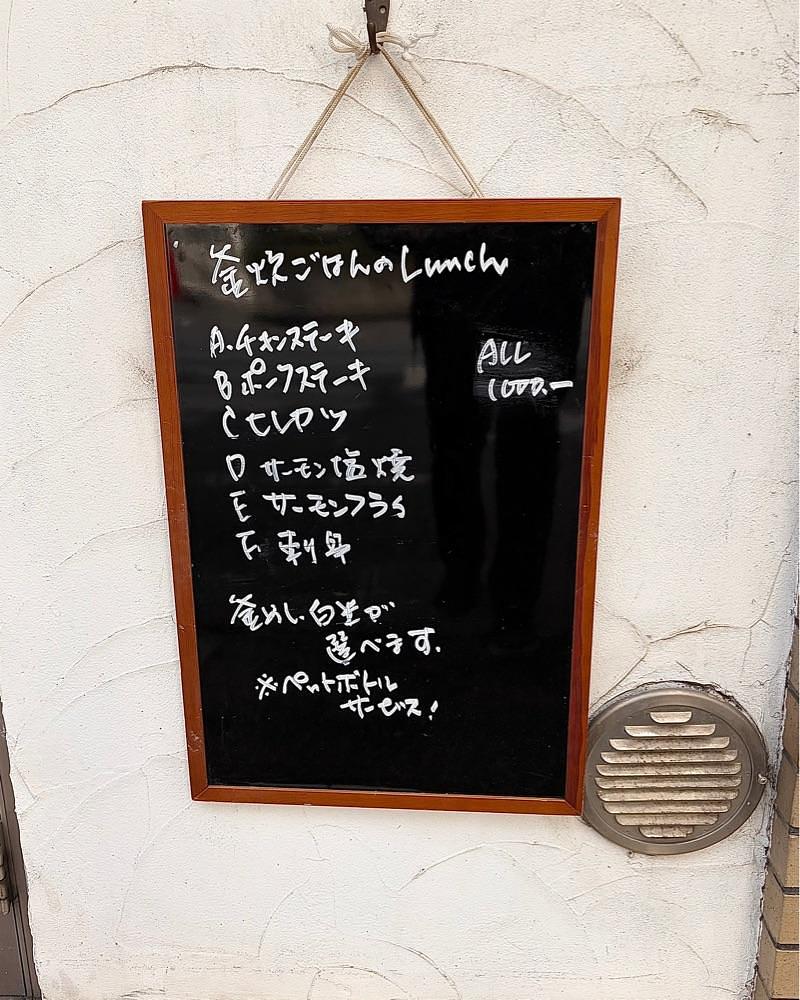 釜炊ごはんのLunch
A.チキンステーキ
B ポークステーキ
C ヒレカツ
D サーモン塩焼
E サーモンフライ
F. 刺身
ALL
1000.ー
釜めし、白米が
選べます.
※ペットボトル
サービス!